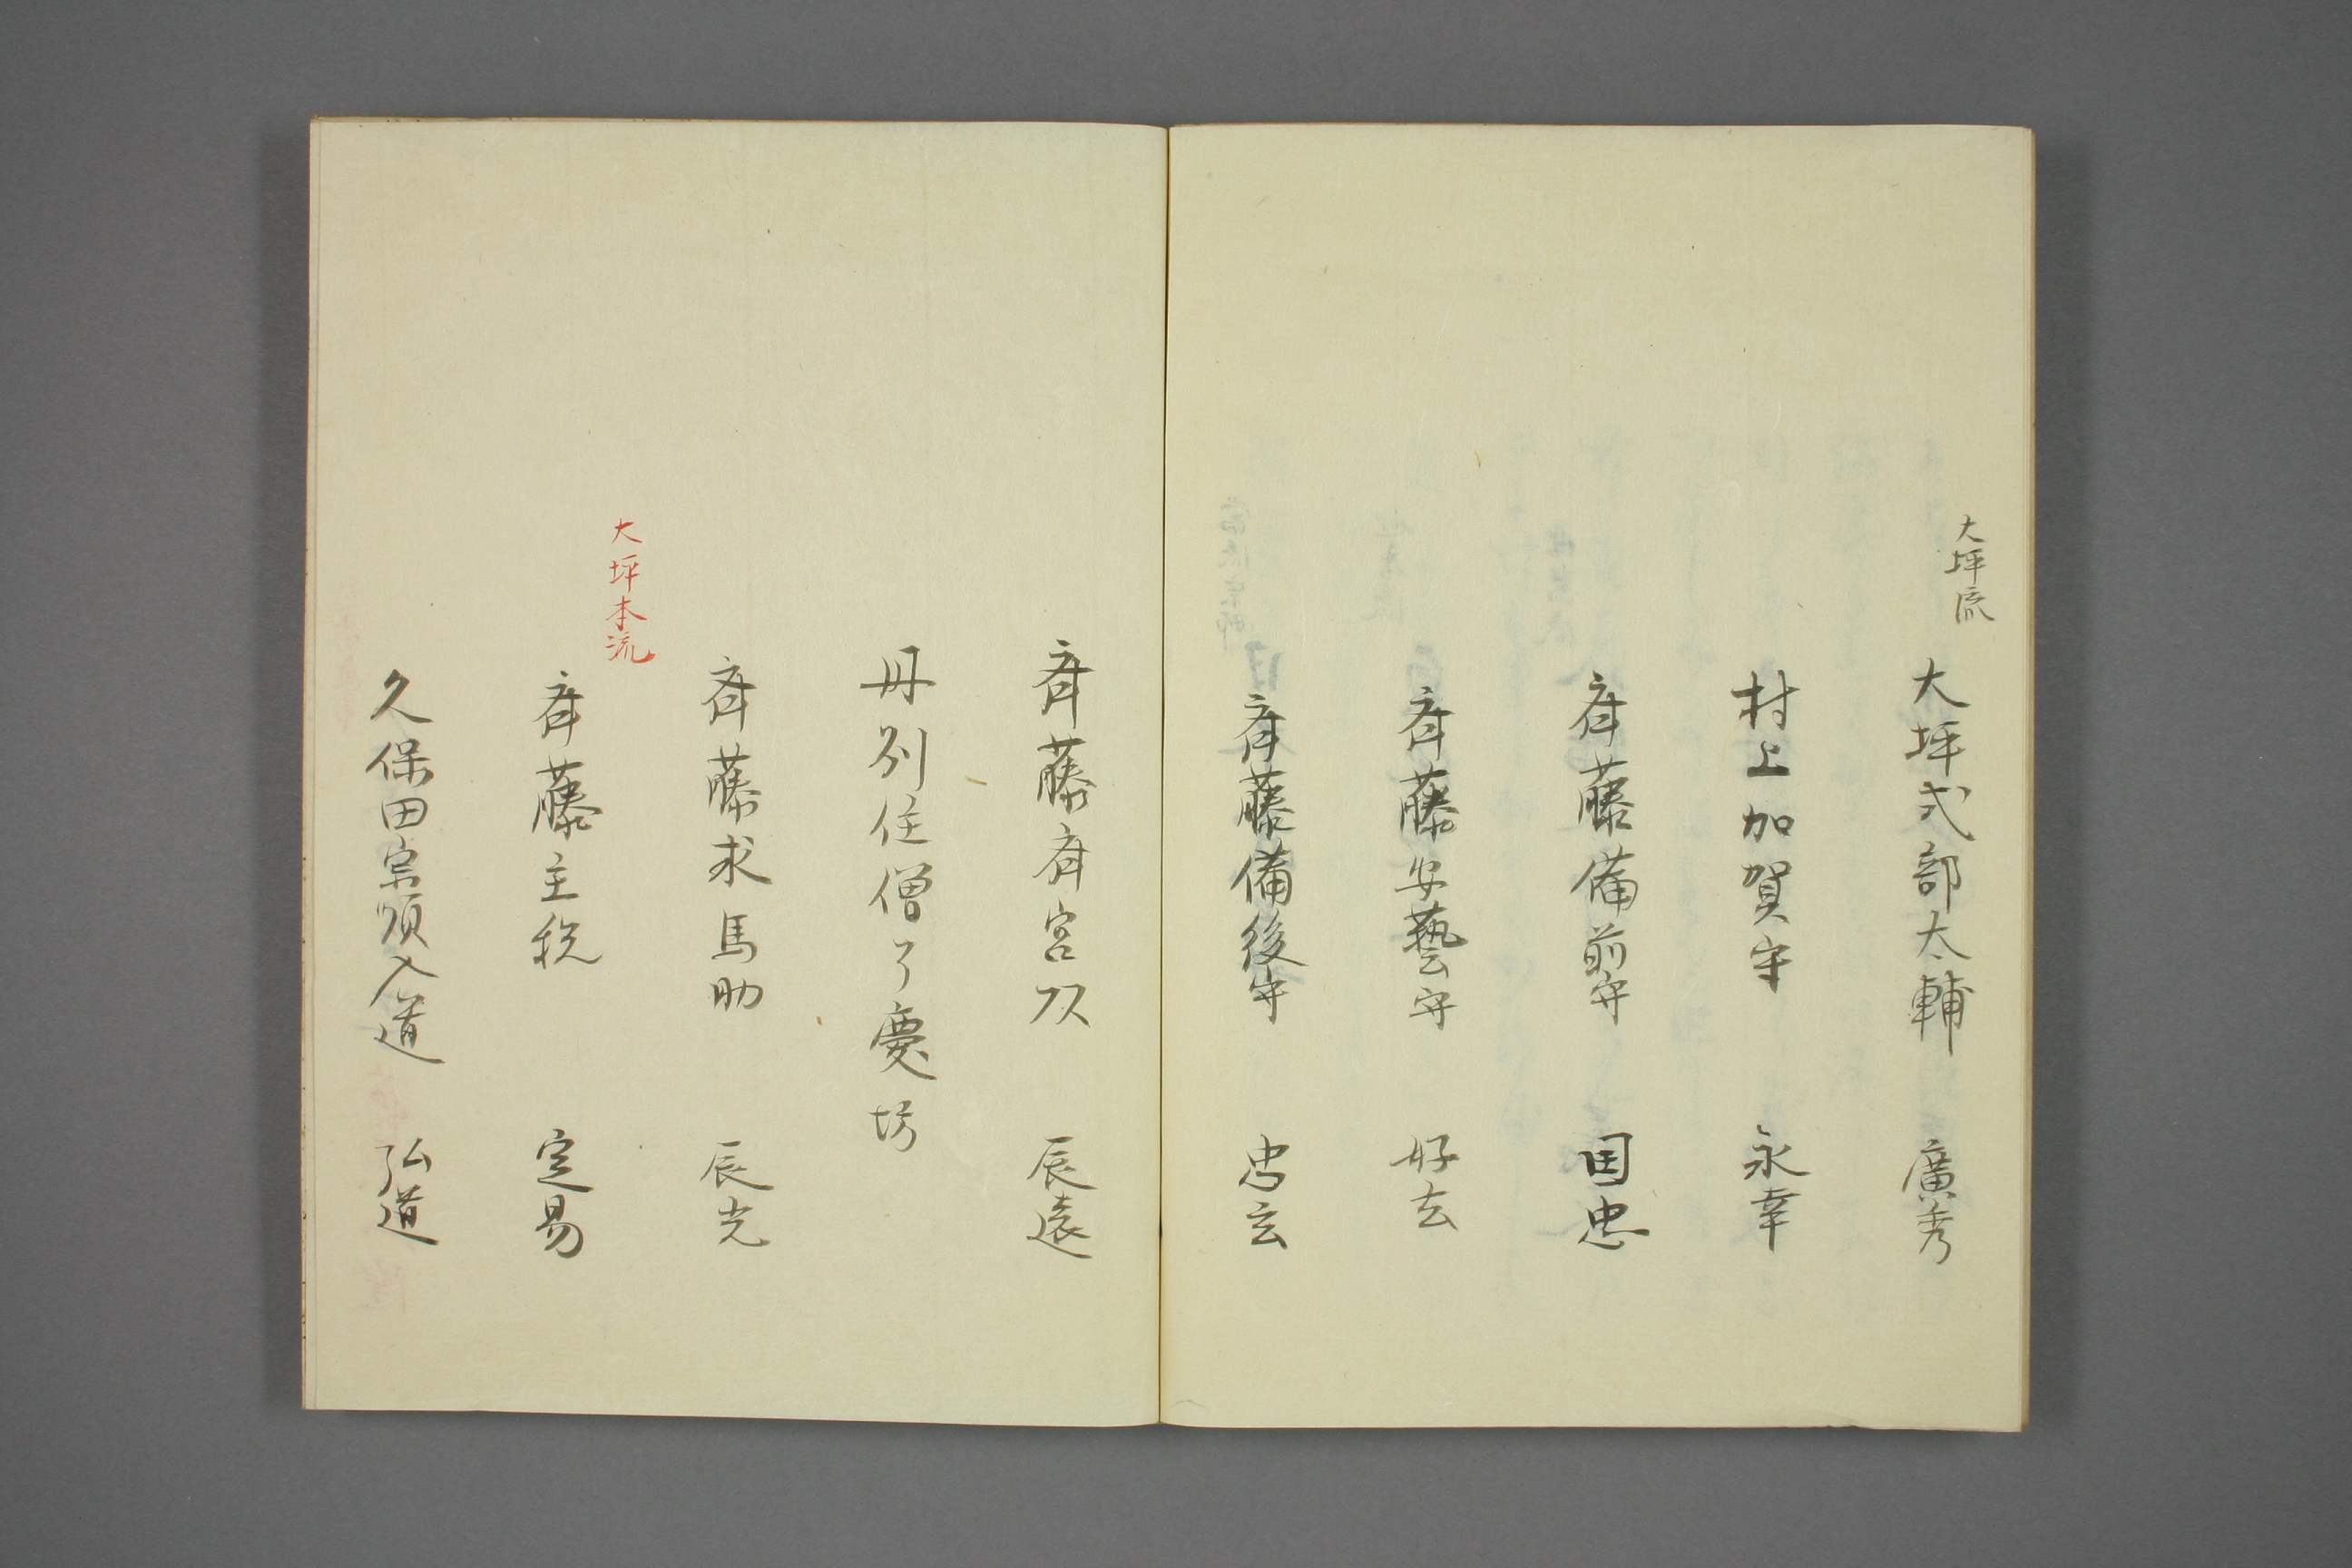 大坪流
大坪式部太輔 廣秀
村上加賀守 永幸
斎藤備前守 国忠
斎藤安藝守 好玄
斎藤備後守 忠玄
斎藤斎宮頭 辰遠
丹列住僧了慶坊
斎藤求馬助 辰光
大坪本流
斎藤主税 定易
久保田宗頂入道 弘道